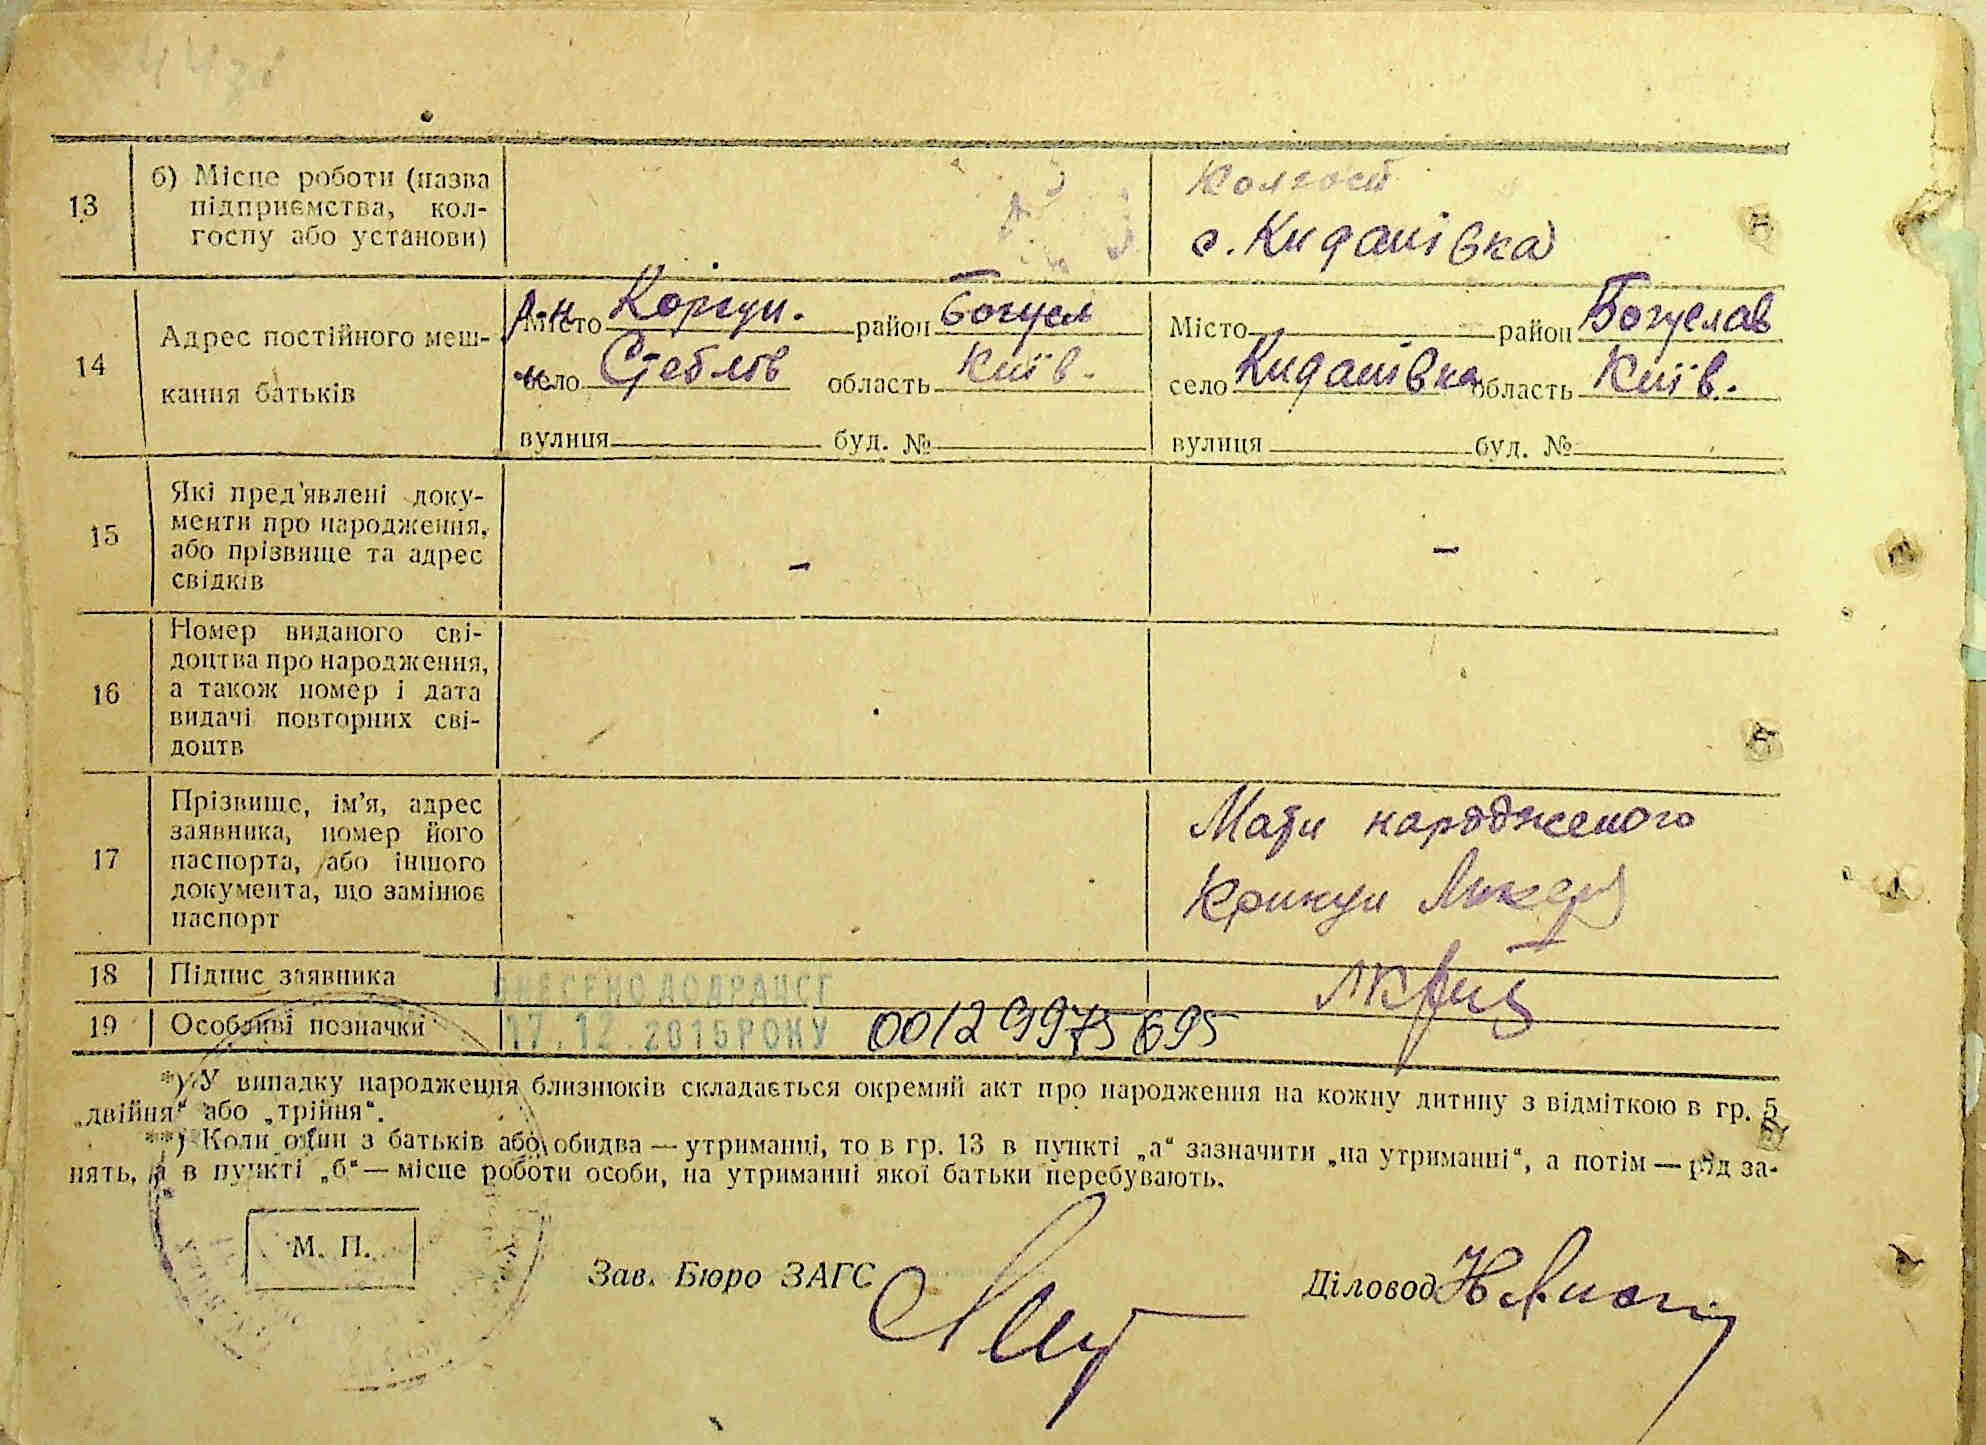 13
б) Місце роботи (назва
підприємства, кол-
госпу або установи)
Колгосп
с. Киданівка
14
Адрес постійного меш-
кання батьків
р-н Місто Корсун. район Богусл
село Стеблів область Київ.
вулиця буд. №
Місто район Богуслав
село Киданівка область Київ.
вулиця буд. №
15
Які пред'явлені доку-
менти про народження,
або прізвище та адрес
свідків
–
–
16
Номер виданого сві-
доцтва про народження,
а також номер і дата
видачі повторних сві-
доцтв
17
Прізвище, ім'я, адрес
заявника, номер його
паспорта, або іншого
документа, що замінює
паспорт
Мати народженого
Крикун
18
Підпис заявника
19
Особливі позначки
ВНЕСЕНО ДО ДРАЦСГ
17.12.2015 РОКУ
00129975695
*) У випадку народження близнюків складається окремий акт про народження на кожну дитину з відміткою в гр. 5
„двійня“ або „трійня“.
**) Коли один з батьків або обидва — утриманці, то в гр. 13 в пункті „а“ зазначити „на утриманні“, а потім — рід за-
нять, а в пункті „б“ — місце роботи особи, на утриманні якої батьки перебувають.
М. П.
Зав. Бюро ЗАГС
Діловод